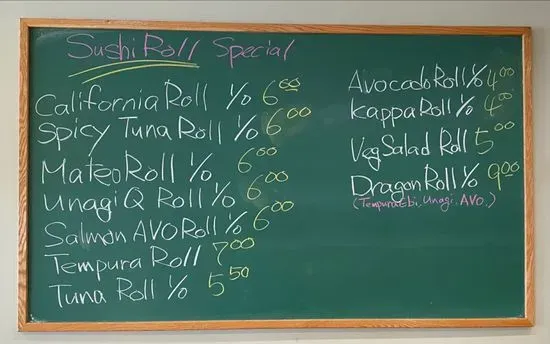 Sushi Roll Special
California Roll 1/0 6.00
Spicy Tuna Roll 1/0 6.00
Mateo Roll 1/0 6.00
Unagi Q Roll 1/0 6.00
Salmon AVO Roll 1/0 6.00
Tempura Roll 7.00
Tuna Roll 1/0 5.50
Avocado Roll 1/0 4.00
Kappa Roll 1/0 4.00
Veg Salad Roll 5.00
Dragon Roll 1/0 9.00
(Tempura Ebi, Unagi, AVO,)